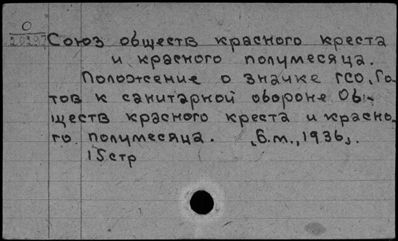 О
Союз обществ красного креста
и красного полумесяца.
Положение о значке ГСО. Го-
тов к санитарной обороне Об-
ществ красного креста и красно-
го полумесяца. [Б.м., 1936].
15стр